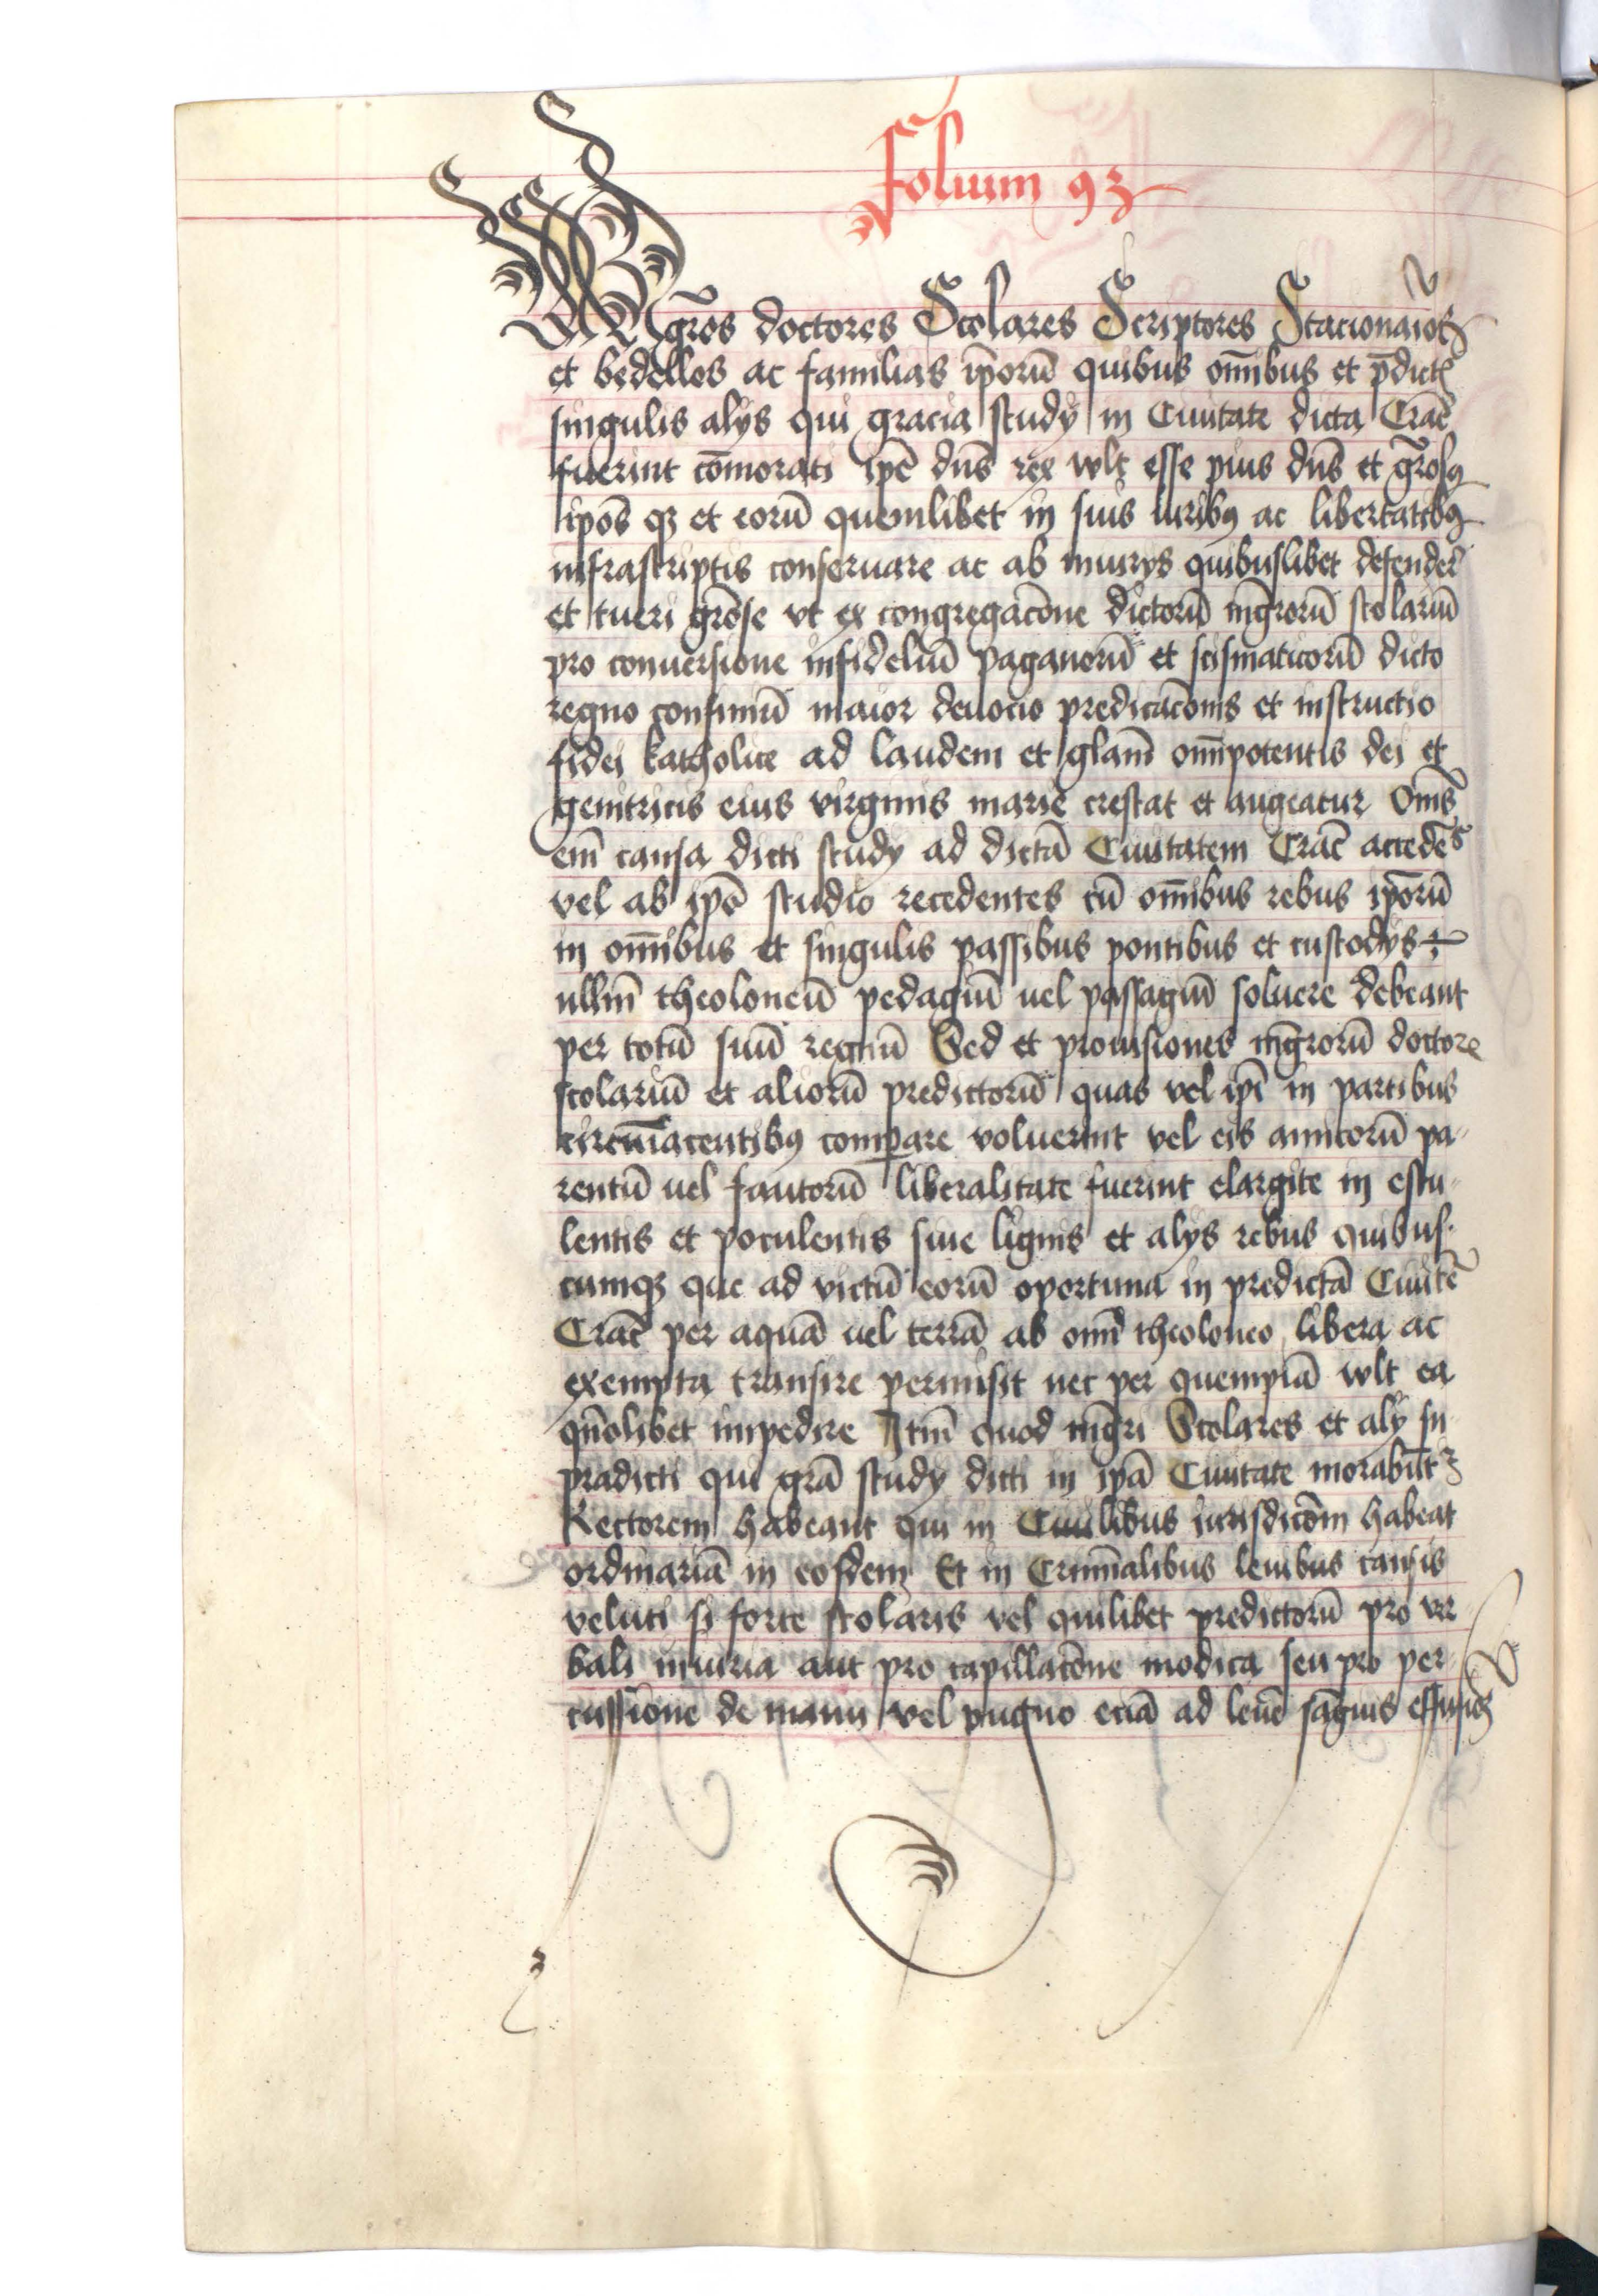 Folium 93
Mgr̃os doctores Scolares Scriptores Stacionarios
et bedellos ac familias ip̄orū quibus om̄ibus et p̄dict̃
singulis alijs qui gracia studij in Ciuitate dicta Crac̄
fuerint cōmorati ip̄e dn̄s rex wlt esse pius dn̄s et gr̄osꝯ
ip̄os qꝫ et eorū quemlibet in suis iuribꝯ ac libertatibꝯ
infrascriptis conseruare ac ab iniurijs quibuslibet defender̃
et tueri gr̄ose vt ex congregac̄one dictorū mgr̄orū scolariū
pro conuersione infideliū paganorū et scismaticorū dicto
regno confiniū maior deuocio predicac̄onis et instructio
fidei katholice ad laudem et glām om̄ipotentis dei et
genitricis eius virginis marie crescat et augeatur Om̄s
em̄ causa dicti studij ad dictā Ciuitatem Crac̄ accedēs
vel ab ip̄o studio recedentes cū om̄ibus rebus ip̄orū
in om̄ibus et singulis passibus pontibus et custodijs
ullm̄ theoloneū pedagiū uel passagiū soluere debeant
per totū suū regnū Sed et prouisiones mgr̄orū doctorꝝ
scolariū et aliorū predictorū quas vel ip̄i in partibus
circūiacentibꝯ comꝑare voluerint vel eis amicorū pa-
rentū uel fautorū liberalitate fuerint elargite in escu-
lentis et poculentis siue lignis et alijs rebus quibus-
cumqꝫ que ad victū eorū oportuna in predictā Ciuitē
Crac̄ per aquā uel terrā ab om̄i theoloneo libera ac
exempta transire permisit nec per quempiā wlt ea
qn̄olibet impedire Itm̄ quod mgr̄i Scolares et alij su-
pradicti qui grā studij dicti in ip̄a Ciuitate morabūtꝛ
Rectorem habeant qui in Ciuilibus iurisdicōm habeat
ordinariā in eosdem Et in Crimīalibus leuibus causis
veluti si forte scolaris vel quilibet predictorū pro ver-
bali iniuria aut pro capillac̄one modica seu pro per-
cussione de manu vel pugno eciā ad leuē sāguis effusioꝫ